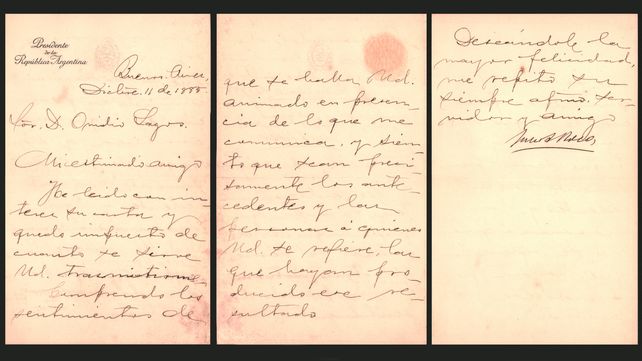 Presidente
de la
República Argentina
Buenos Aires,
Dicbre. 11 de 1885
Sor. D. Ovidio Lagos.
Mi estimado amigo
He leido con in-
teres su carta y
quedo impuesto de
cuanto se sirve
Ud. trasmitirme.
Comprendo los
sentimientos de
que se halla Ud.
animado en presen-
cia de lo que me
comunica, y sien-
to que sean preci-
samente los ante-
cedentes y las
personas á quienes
Ud. se refiere, las
que hayan pro-
ducido ese re-
sultado
Deseándole la
mayor felicidad,
me repito su
siempre afmo. ser-
vidor y amigo
Julio A Roca